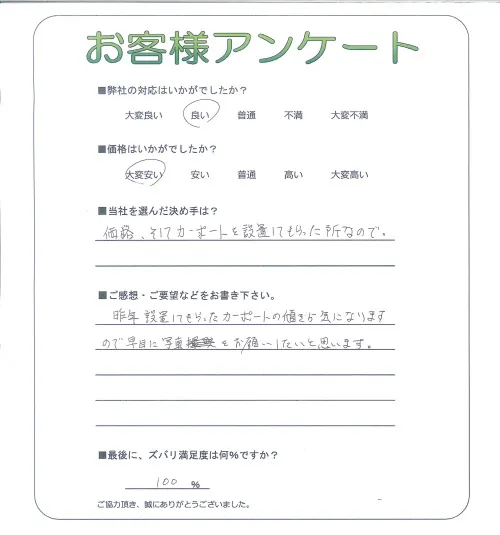 お客様アンケート
■弊社の対応はいかがでしたか？
大変良い 良い 普通 不満 大変不満
■価格はいかがでしたか？
大変安い 安い 普通 高い 大変高い
■当社を選んだ決め手は？
価格、そしてカーポートを設置してもらった所なので。
■ご感想・ご要望などをお書き下さい。
昨年設置してもらったカーポートの値を気になります
ので早目に写真をお願いしたいと思います。
■最後に、ズバリ満足度は何％ですか？
100 ％
ご協力頂き、誠にありがとうございました。